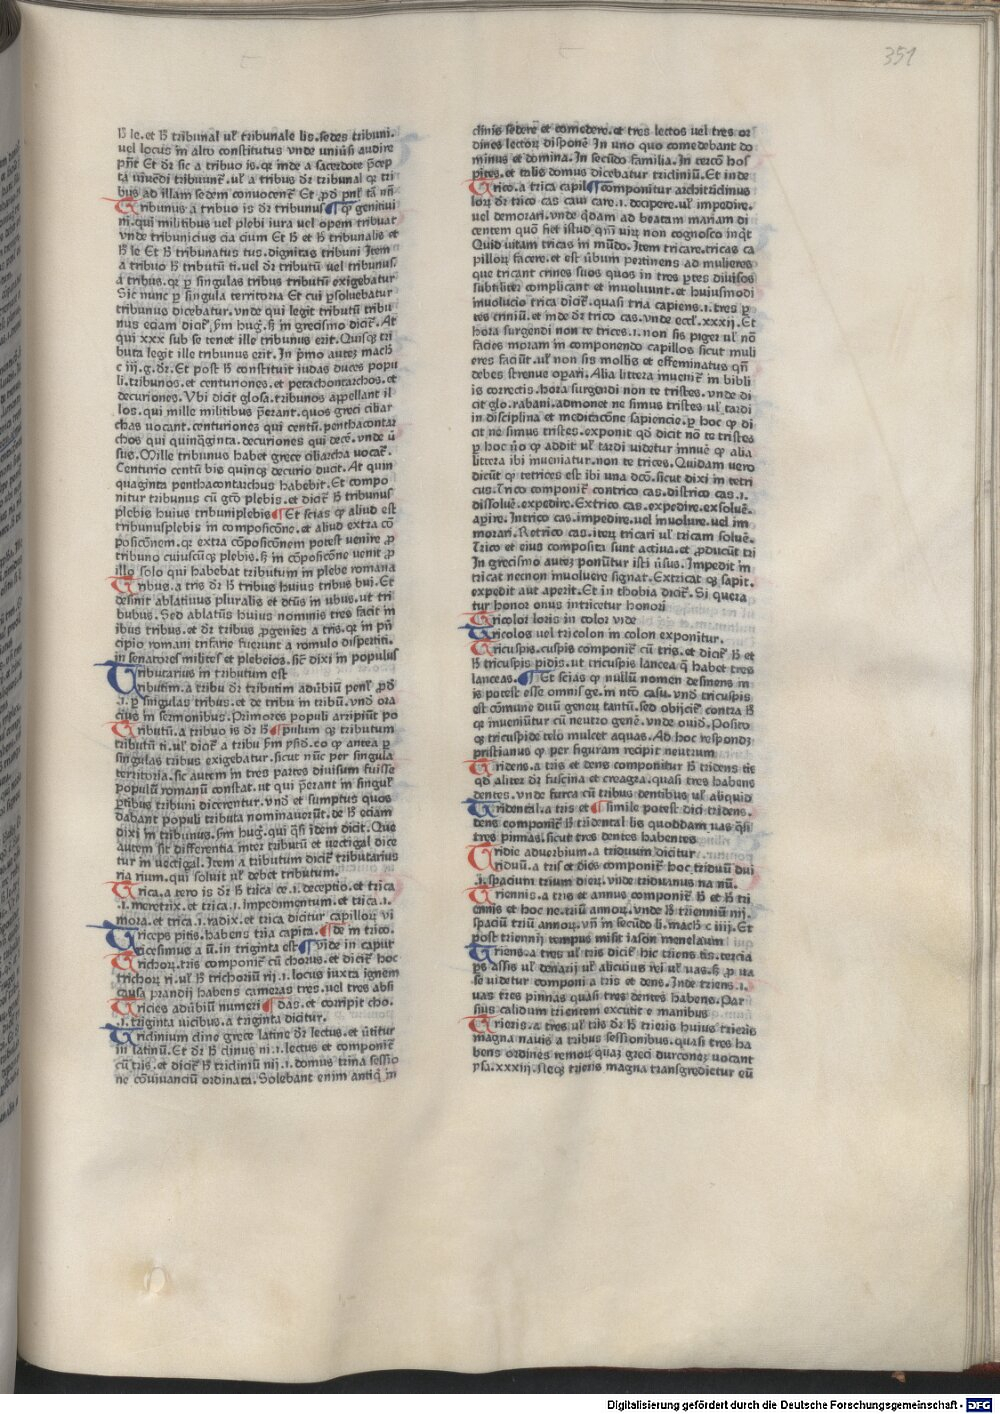 351
ħ le.et ħ tribunal uľ tribunale lis.sedes tribuni.
uel locus in alto constitutus vnde uniũsi audire
pñt Et dr̃ sic a tribuo is.qr inde a sacerdote p̃cep
ta uiuẽdi tribuunt̃.uľ a tribus dr̃ tribunal qr tri
bus ad illam sedem conuocent̃ Et ꝓd pnľ tã nñ
Tribunus a tribuo is dr̃ tribunus ¶ qͥ genitiui
ni.qui militibus uel plebi iura uel opem tribuat
vnde tribunicius cia cium Et ħ et ħ tribunalis et
ħ le Et ħ tribunatus tus.dignitas tribuni Item
a tribuo ħ tributũ ti.uel dr̃ tributũ uel tribunus.
a tribus.qr ꝑ singulas tribus tributũ exigebatur
Sic nunc ꝑ singula territoria Et cui ꝑsoluebatur
tribunus dicebatur.vnde qui legit tributũ tribu
nus eciam dicit̃.ẜm hug̃.ẜꝫ in grecismo dicit̃.At
qui xxx sub se tenet ille tribunus erit.Quisqꝫ tri
buta legit ille tribunus erit.In pͥmo autez mach̃
c iij.g.dr̃.Et post ħ constituit iudas duces popu
li.tribunos.et centuriones.et petachontarchos.et
decuriones.Vbi dicit glosa.tribunos appellant il
los.qui mille militibus p̃erant.quos greci ciliar
chas uocant.centuriones qui centũ.penthacontar
chos qui quinq̃ginta.decuriones qui decẽ.vnde ũ
sus.Mille tribunus habet grece ciliarcha uocat̃.
Centurio centũ bis quinqꝫ decurio ducit.At quin
quaginta penthacontarchus habebit.Et compo
nitur tribunus cũ gtõ plebis.et dicit̃ ħ tribunus
plebis huius tribuniplebis ¶ Et scias ꝙ aliud est
tribunusplebis in composicõne.et aliud extra cõ
posicõnem.qr extra cõposicõnem potest venire ꝓ
tribuno cuiuscũqꝫ plebis.ẜꝫ in cõposicõne venit ꝓ
illo solo qui habebat tributum in plebe romana
Tribus.a tris dr̃ ħ tribus huius tribus bui.Et
desinit ablatiuus pluralis et dtũs in ubus.ut tri
bubus.Sed ablatiũs huius nominis tres facit in
ibus tribus.et dr̃ tribus ꝓgenies a tris.qr in pñ
cipio romani trifarie fuerunt a romulo dispertiti.
in senatores milites et plebeios.sic̃ dixi in populus
Tributarius in tributum est
Tributim.a tribu dr̃ tributim aduẽbiũ penľ ꝓd̃
.i.ꝑ singulas tribus.et de tribu in tribũ.vnd̃ ora
cius in sermonibus.Primores populi arripiũt po
Tributũ.a tribuo is dr̃ ħ ¶ pulum qͥ tributum
tributũ ti.uľ dicit̃ a tribu ẜm ysid̃.eo ꝙ antea ꝑ
singulas tribus exigebatur.sicut nũc per singula
territoria.sic autem in tres partes diuisum fuisse
populũ romanũ constat.ut qui p̃erant in singuľ
ꝑtibus tribuni dicerentur.vnd̃ et sumptus quos
dabant populi tributa nominauerũt.de ħ eciam
dixi in tribunus.ẜm hug̃.qui q̃si idem dicit.Que
autem sit differentia inter tributũ et vectigal dice
tur in vectigal.Item a tributum dicit̃ tributarius
ria rium.qui soluit uľ debet tributum.
Trica.a tero is dr̃ ħ trica ce .i.deceptio.et trica
.i.meretrix.et trica.i.impedimentum.et trica.i.
mora.et trica.i.radix.et trica dicitur capilloꝝ vi
Triceps pitis.habens tria capita. ¶ de in trico.
Tricesimus a ũ.in triginta est ¶ vide in caput
Trichoꝝ.tris componit̃ cũ chorus.et dicit̃ hoc
trichoꝝ ri.uľ ħ trichoriũ rij .i.locus iuxta ignem
causa prandij habens cameras tres.uel tres absi
Tricies aduẽbiũ numeri ¶ das.et corripit cho.
.i.triginta uicibus.a triginta dicitur.
Triclinium cline grece latine dr̃ lectus.et ũtitur
in latinũ.Et dr̃ ħ clinus ni .i.lectus et componit̃
cũ tris.et dicit̃ ħ tricliniũ nij .i.domus trina sessio
ne cõuiuanciũ ordinata.Solebant enim antiq̃ in
clinis sedere et comedere.et tres lectos uel tres or
dines lectoꝝ disponẽ In uno quo comedebant do
minus et domina.In secũdo familia.In tercõ hos
pites.et talis domus dicebatur tricliniũ.Et inde
Trico.a trica capil ¶ componitur architriclinus
loꝝ dr̃ trico cas caui care.i.decipere.uľ impedire.
uel demorari.vnde q̃dam ad beatam mariam di
centem quõ fiet istud qm̃ uirꝫ non cognosco inq̃t
Quid uitam tricas in mũdo.Item tricare.tricas ca
pilloꝝ facere.et est ũbum pertinens ad mulieres
que tricant crines suos quos in tres ꝑtes diuisos
subtiliter complicant et inuoluunt.et huiusmodi
inuolucio trica dicit̃.quasi tria capiens.i.tres ꝑ
tes criniũ.et inde dr̃ trico cas.vnde eccľ.xxxij.Et
hora surgendi non te trices.i.non sis piger uľ nõ
facies moram in componendo capillos sicut muli
eres faciũt.uľ non sis mollis et effeminatus qñ
debes strenue oꝑari.Alia littera inuenit̃ in bibli
is correctis.hora surgendi non te tristes.vnde di
cit glo.rabani.admonet ne simus tristes uľ tardi
in disciplina et meditacõne sapiencie.ꝑ hoc ꝙ di
cit ne simus tristes.exponit qd̃ dicit nõ te tristes
ꝑ hoc ũo ꝙ addit uľ tardi uidetur innuẽ ꝙ alia
littera ibi inueniatur.non te trices.Quidam uero
dicũt ꝙ tetrices est ibi una dcõ.sicut dixi in tetri
cus.Trico componit̃ contrico cas.districo cas.i.
dissoluẽ.expedire.Extrico cas.expedire.exsoluẽ.
aꝑire.Intrico cas.impedire.uel inuolure.uel im
morari.Retrico cas.iterꝫ tricari uľ tricam soluẽ.
Trico et eius composita sunt actiua.et ꝓducũt tri
In grecismo autez ponũtur isti ũsus.Impedit in
tricat necnon inuoluere signat.Extricat qꝫ sapit.
expedit aut aperit.Et in thobia dicit̃.Si quera
tur honor onus intricetur honori
Tricolor loris in color vide
Tricolos uel tricolon in colon exponitur.
Tricuspis.cuspis componit̃ cũ tris.et dicit̃ ħ et
ħ tricuspis pidis.ut tricuspis lancea q̃ habet tres
lanceas. ¶ Et scias ꝙ nullũ nomen desinens in
is potest esse omnis ge.in nctõ casu.vnd̃ tricuspis
est cõmune duũ generꝫ tantũ.sed obijcit̃ contra ħ
qr inueniũtur cũ neutro genẽ.vnde ouid̃.Posito
qꝫ tricuspide telo mulcet aquas.Ad hoc respondꝫ
pristianus ꝙ per figuram recipit neutrum
Tridens.a tris et dens componitur ħ tridens tis
qd̃ aliter dr̃ fuscina et creagra.quasi tres habens
dentes.vnde furca cũ tribus dentibus uľ aliquid
Tridental.a tris et ¶ simile potest dici tridens.
dens componit̃ ħ tridental lis quoddam uas q̃si
tres pinnas.sicut tres dentes habentes
Tridie aduerbium.a triduum dicitur
Triduũ.a tris et dies componit̃ hoc triduũ dui
.i.spacium trium dierꝫ.vnde triduanus na nũ.
Triennis.a tris et annus componit̃ ħ et ħ tri
ennis et hoc ne.triũ annoꝝ.vnde ħ trienniũ nij.
spaciũ triũ annoꝝ.vñ in secũdo li.mach̃ c iiij.Et
post triennij tempus misit iason menelaum
Triens.a tres uľ tris dicit̃ hic triens tis.tercia
ꝑs assis uľ denarij uľ alicuius rei uľ uas.ẜꝫ ꝓ ua
se uidetur componi a tris et dens.Inde triens.i.
uas tres pinnas quasi tres dentes habens.Par
sius calidum trientem excutit e manibus
Trieris.a tres uľ tris dr̃ ħ trieris huius trieris
magna nauis a tribus sessionibus.quasi tres ha
bens ordines remoꝝ quaz greci durconeꝫ uocant
ysa.xxxiij.Neqꝫ trieris magna transgredietur eũ
Digitalisierung gefördert durch die Deutsche Forschungsgemeinschaft - DFG